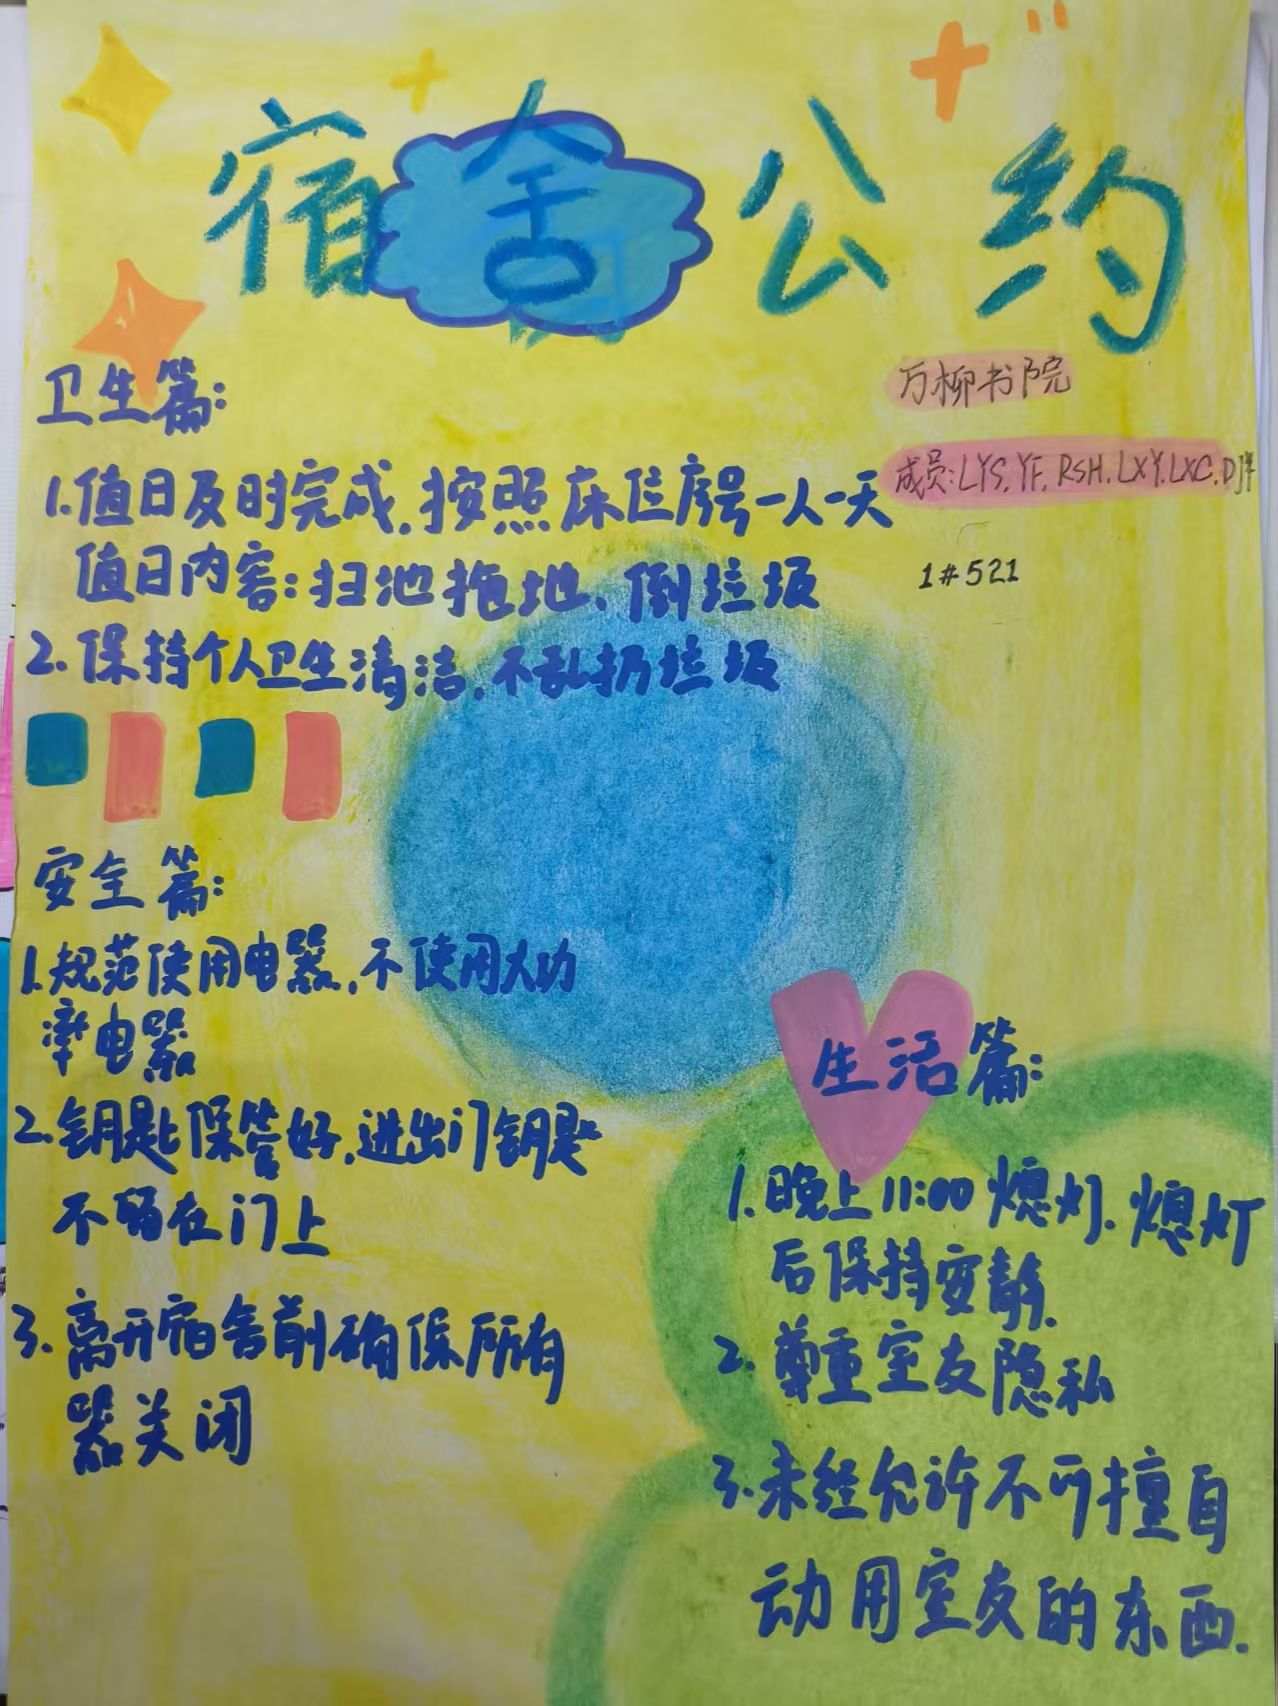 宿舍公约
万柳书院
成员:LYS,YF,RSH,LXY,LXC,DJ
1#521
卫生篇:
1.值日及时完成,按照床位序号一人一天
值日内容:扫池拖地、倒垃圾
2.保持个人卫生清洁,不乱扔垃圾
安全篇:
1.规范使用电器,不使用大功
率电器
2.钥匙保管好,进出门钥匙
不留在门上
3.离开宿舍前确保所有
器关闭
生活篇:
1.晚上11:00熄灯.熄灯
后保持安静.
2.尊重室友隐私
3.未经允许不可擅自
动用室友的东西.